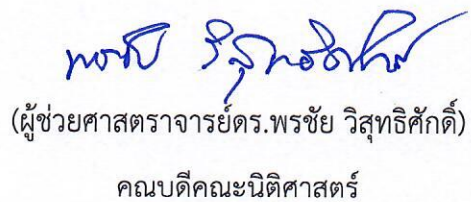 พรชัย วิสุทธิศักดิ์
(ผู้ช่วยศาสตราจารย์ดร.พรชัย วิสุทธิศักดิ์)
คณบดีคณะนิติศาสตร์